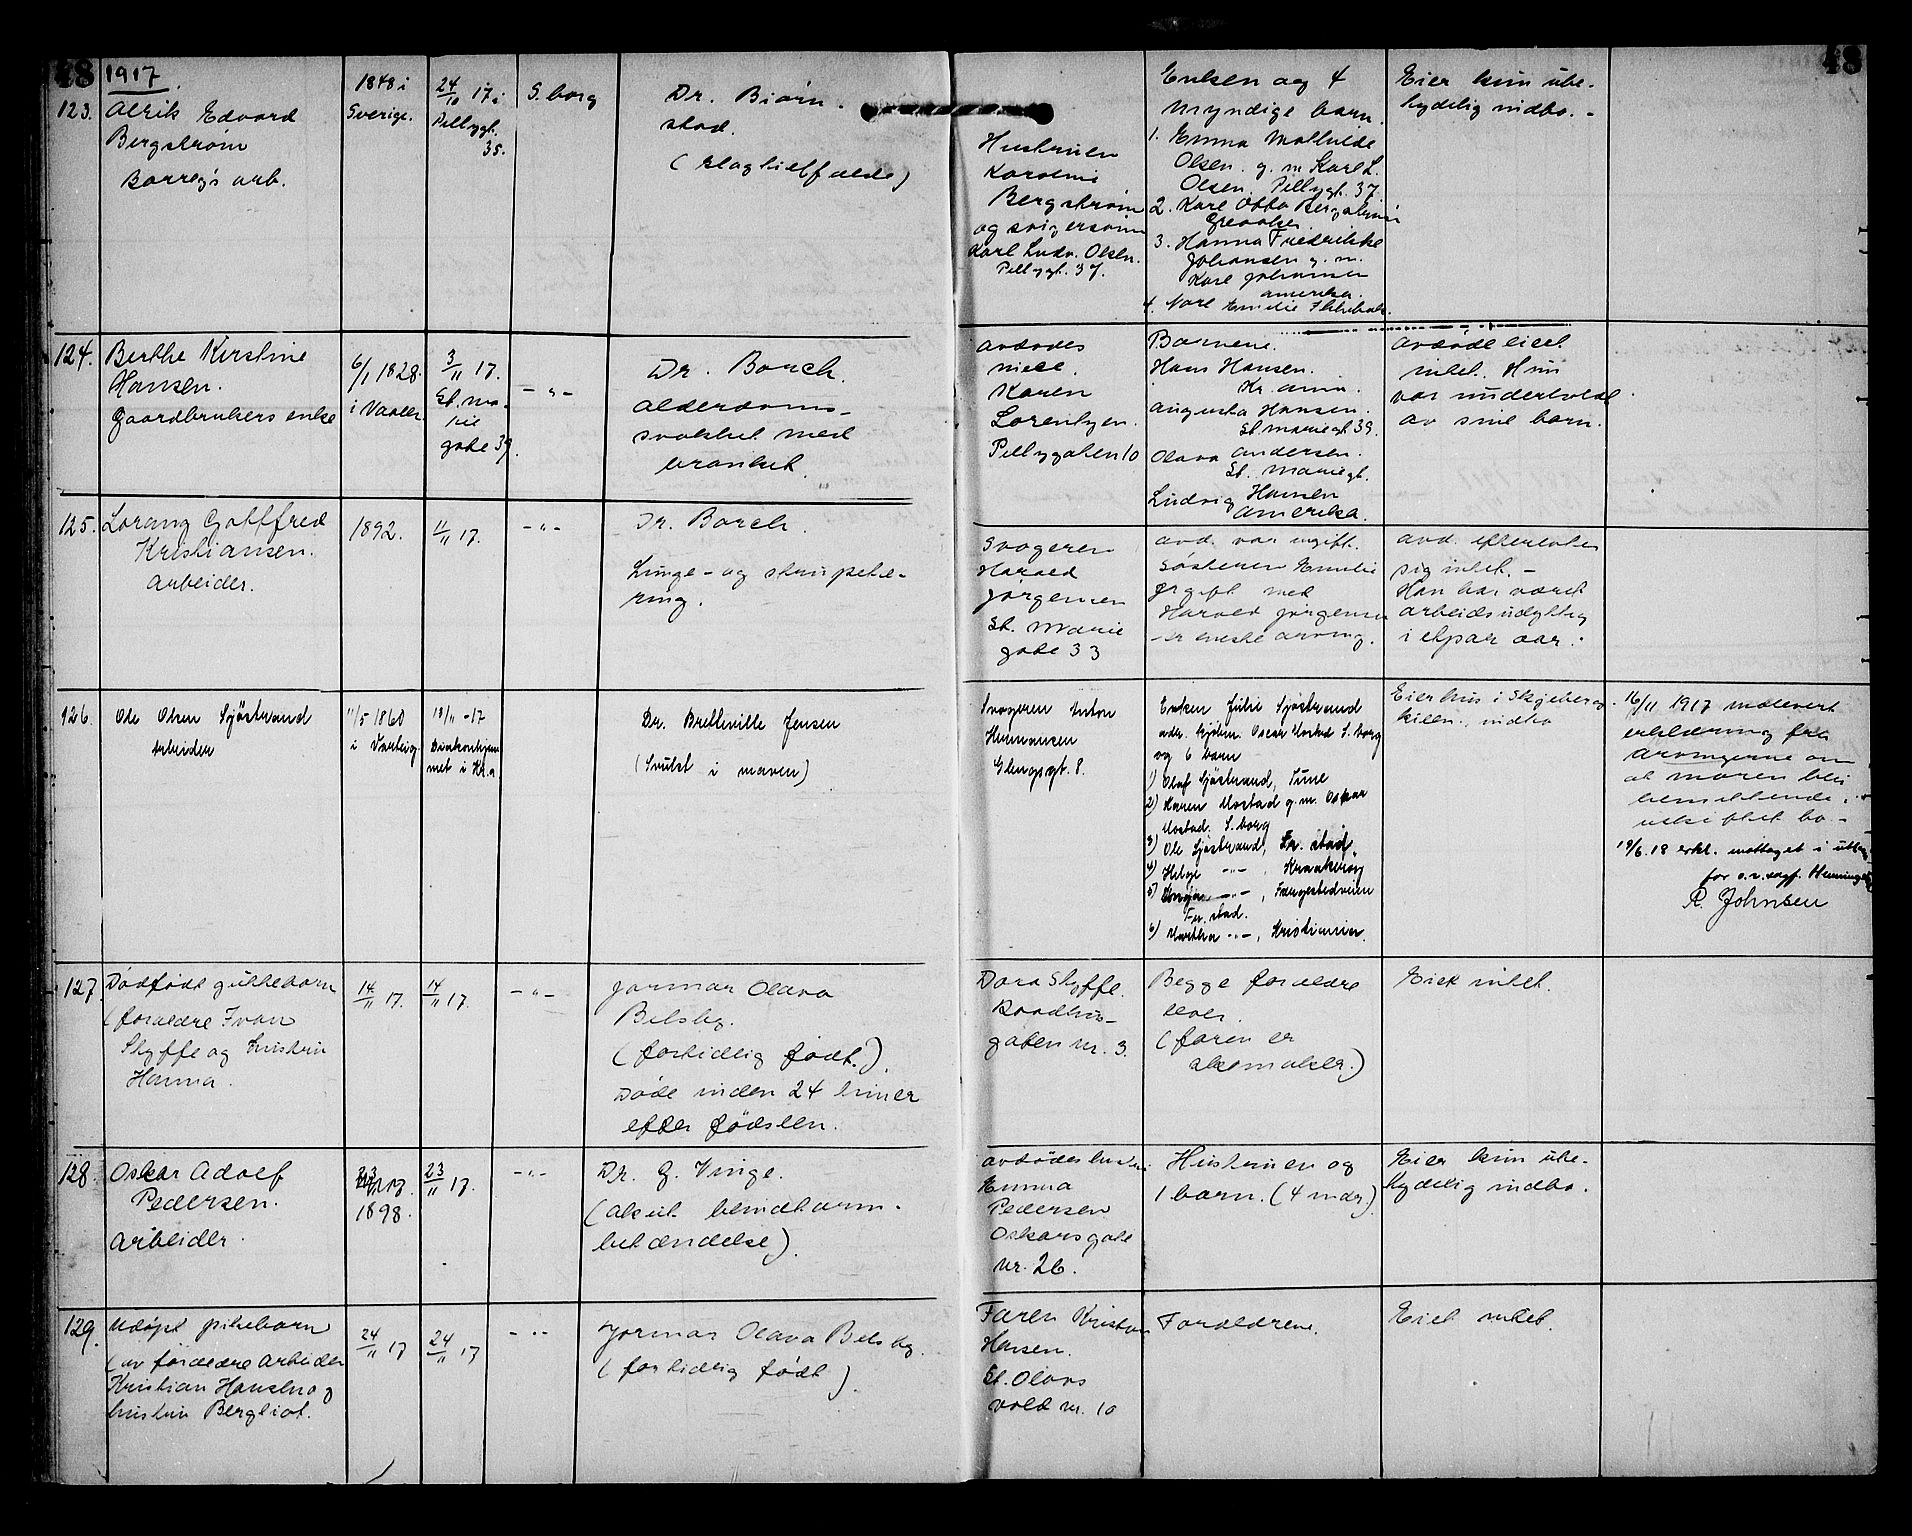 48
48
1917.
123.
Alrik Edvard
Bergstrøm
Borreg's arb.
1848 i
Sverige.
24/10 17 i
Pellygt.
35.
S.borg
Dr. Biørn-
stad.
(slagtilfælde)
Hustruen
Karoline
Bergstrøm
og svigersønn
Karl Ludv. Olsen.
Pellygt. 37.
Enken og 4
myndige barn.
1. Emma Mathilde
Olsen. g. m Karl L.
Olsen. Pellygt. 37.
2. Karl Otto Bergstrøm
Greaaker
3. Hanna Fredrikke
Johansen g. m.
Karl Johansen
Amerika.
4. Emilie
Eier kun ube-
tydelig indbo. -
124.
Berthe Kirstine
Hansen.
Gaardbrukers enke
6/1 1828.
i Vaaler
3/11 17.
St. Ma-
rie
gate 39.
- " -
Dr. Borch.
Alderdoms-
svakhet med
brankit
Avdødes
niece.
Karen
Lorentzen.
Pellygaten 10
Barnene.
Hans Hansen.
Kr.ania.
Augusta Hansen.
St. Mariegt 39.
Olava Andersen.
St. Mariegt.
Ludvig Hansen
Amerika.
Avdøde eiet
intet. Hun
var underholdt
av sine barn.
125.
Lorang Gottfred
Kristiansen.
Arbeider.
1892.
11/11 17.
- " -
Dr. Borch.
Lunge- og strupetæ-
ring.
Svogeren
Harald
Jørgensen
St. Marie
gate 33
Avd. var ugift.
Søsteren Emilie
gift med
Harald Jørgensen
er eneste arving.
Avd. efterlot
sig intet. -
Han har været
arbeidsudyktig
i etpar aar.
126.
Ole Olsen Sjøstrand
Arbeider
11/5 1860
i Varteig
12/11 -17
Diakonhjem
met i Kr.a
Dr. Bretteville Jensen
(Svulst i maven)
Svogeren Anton
Hermansen
Glengsgt. 8.
Enken Julie Sjøstrand
adr. Oscar Mostad S.borg
og 6 barn
1) Olaf Sjøstrand, Tune
2) Karen Mostad g.m. Oskar
Mostad. S.borg
3) Ole Sjøstrand, Fr.stad
4) Helge - " - , Kraakerøy
5) - " - , Færgestedveien
Fr.stad.
6) Martha - " - , Kristiania.
Eier hus i Skjeberg
kilen, indbo
16/11 1917 indlevert
erklæring fra
arvingerne om
at moren blir
besittende i
uskiftet bo -
19/6.18 erkl. mottaget i
for o.r.sagf. Henningsen
R. Johnsen
127.
Dødfødt guttebarn
(forældre Ivan
Skyffe og hustru
Hanna.
14/11 17.
14/11 17.
- " -
Jormor Olava
Belsby.
(fortidlig født.)
Døde inden 24 timer
efter fødslen.
Dora Skyffe.
Raadhus-
gaten nr. 3.
Begge forældre
lever.
(faren er
skomaker.)
Eiet intet.
128.
Oskar Adolf
Pedersen.
Arbeider.
1898.
23/11 17.
- " -
Dr. G. Vinge.
(akut blindtarm-
betændelse).
Avdødes hustru
Emma
Pedersen
Oskarsgate
nr. 26.
Hustruen og
1 barn. (4 mdr)
Eier kun ube-
tydelig indbo.
129.
Udøpt pikebarn
(av forældre arbeider
Kristian Hansen og
hustru Bergliot.
24/11 17
24/11 17
- " -
Jormor Olava Belsby.
(fortidlig født).
Faren Kristian
Hansen.
St. Olavs
vold nr. 10
Forældrene.
Eiet intet.